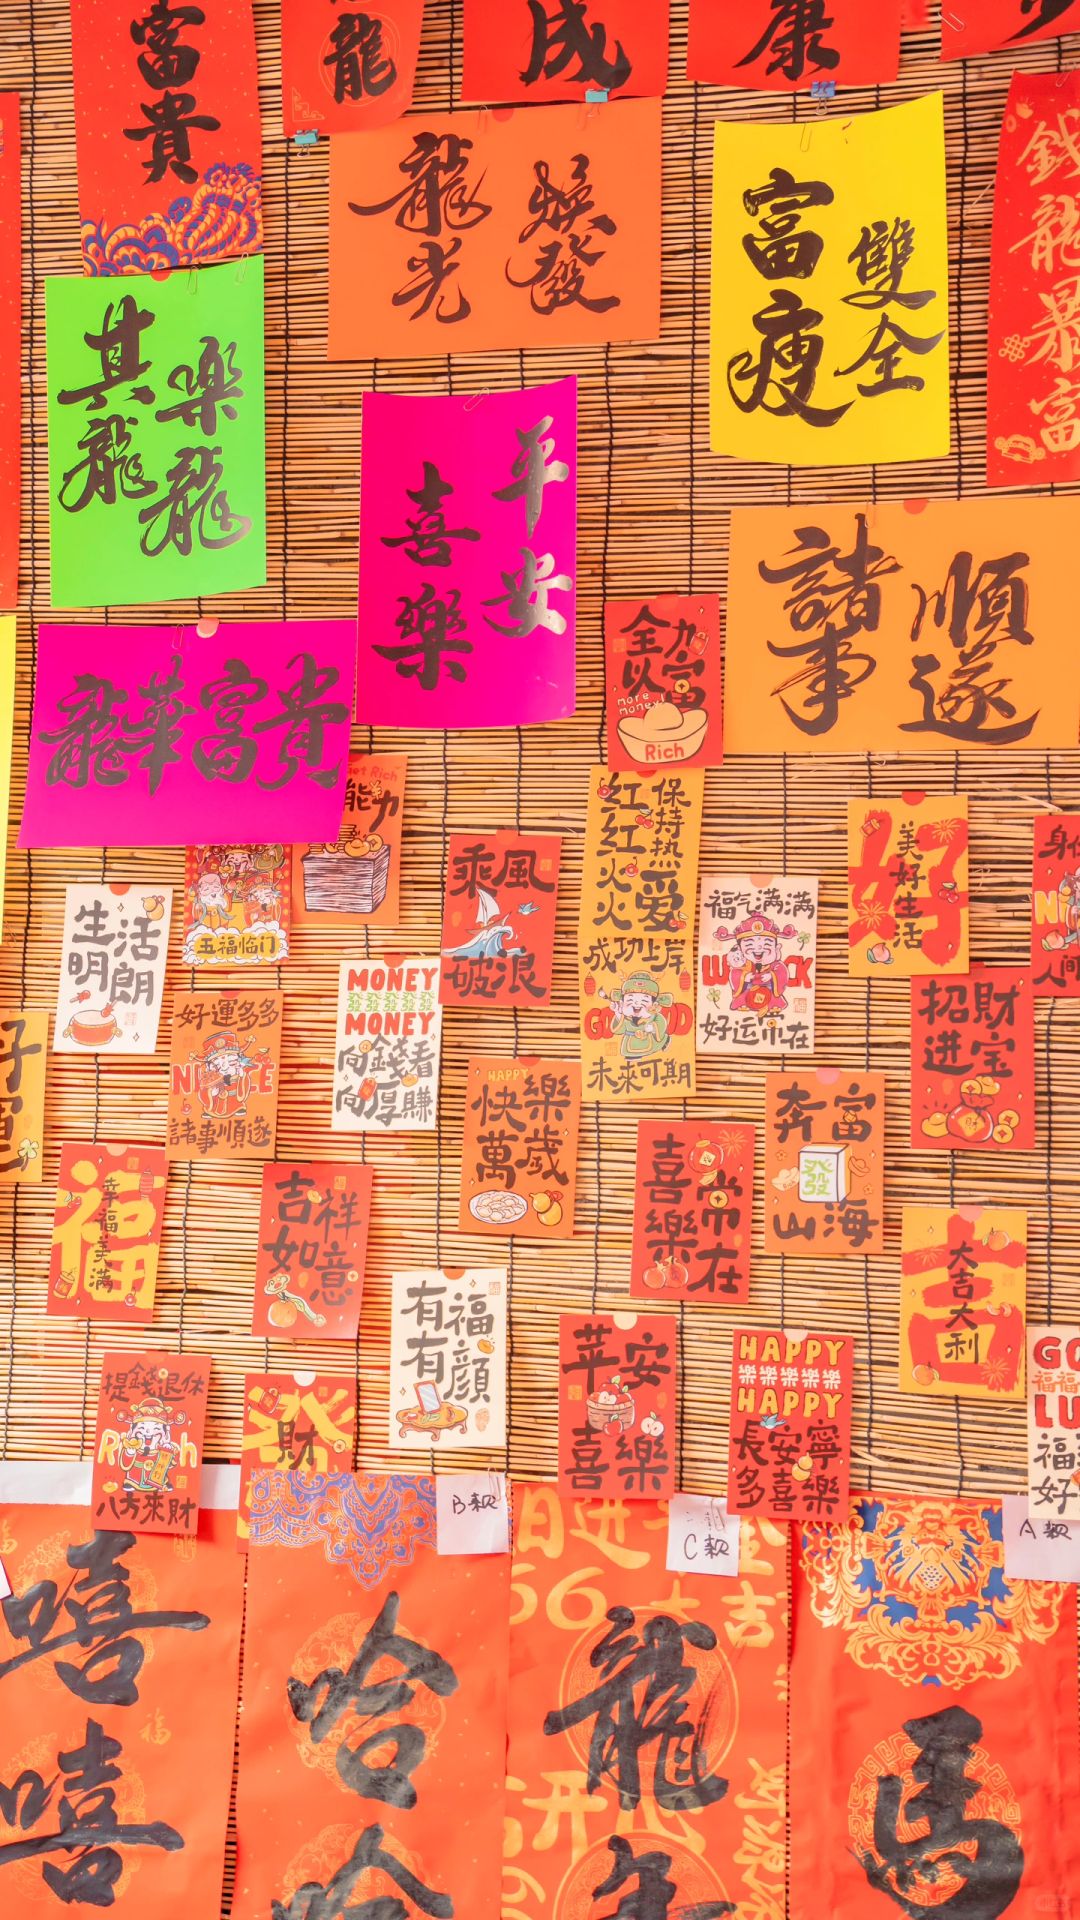 富貴
龍
成
康
龍光
煥發
富瘦
雙全
錢龍暴富
其龍
樂龍
喜樂
平安
諸事
順遂
龍華富貴
全力
以富
more money!
Rich
Rich
能力
五福临门
乘風
破浪
红红火火
保持热爱
成功上岸
GOOD
未來可期
福气满满
LUCK
好运常在
好
美好生活
生活
明朗
好運多多
NICE
諸事順遂
MONEY
發發發發發
MONEY
向錢看
向厚賺
HAPPY
快樂
萬歲
招財
进宝
奔富
發
山海
喜樂
常在
福
幸福美滿
吉祥
如意
有福
有顏
吉
大吉大利
苹安
喜樂
HAPPY
樂樂樂樂樂
HAPPY
長安寧
多喜樂
提錢退休
Rich
八方來財
發
財
B款
C款
A款
嘻嘻
哈哈
龍
馬